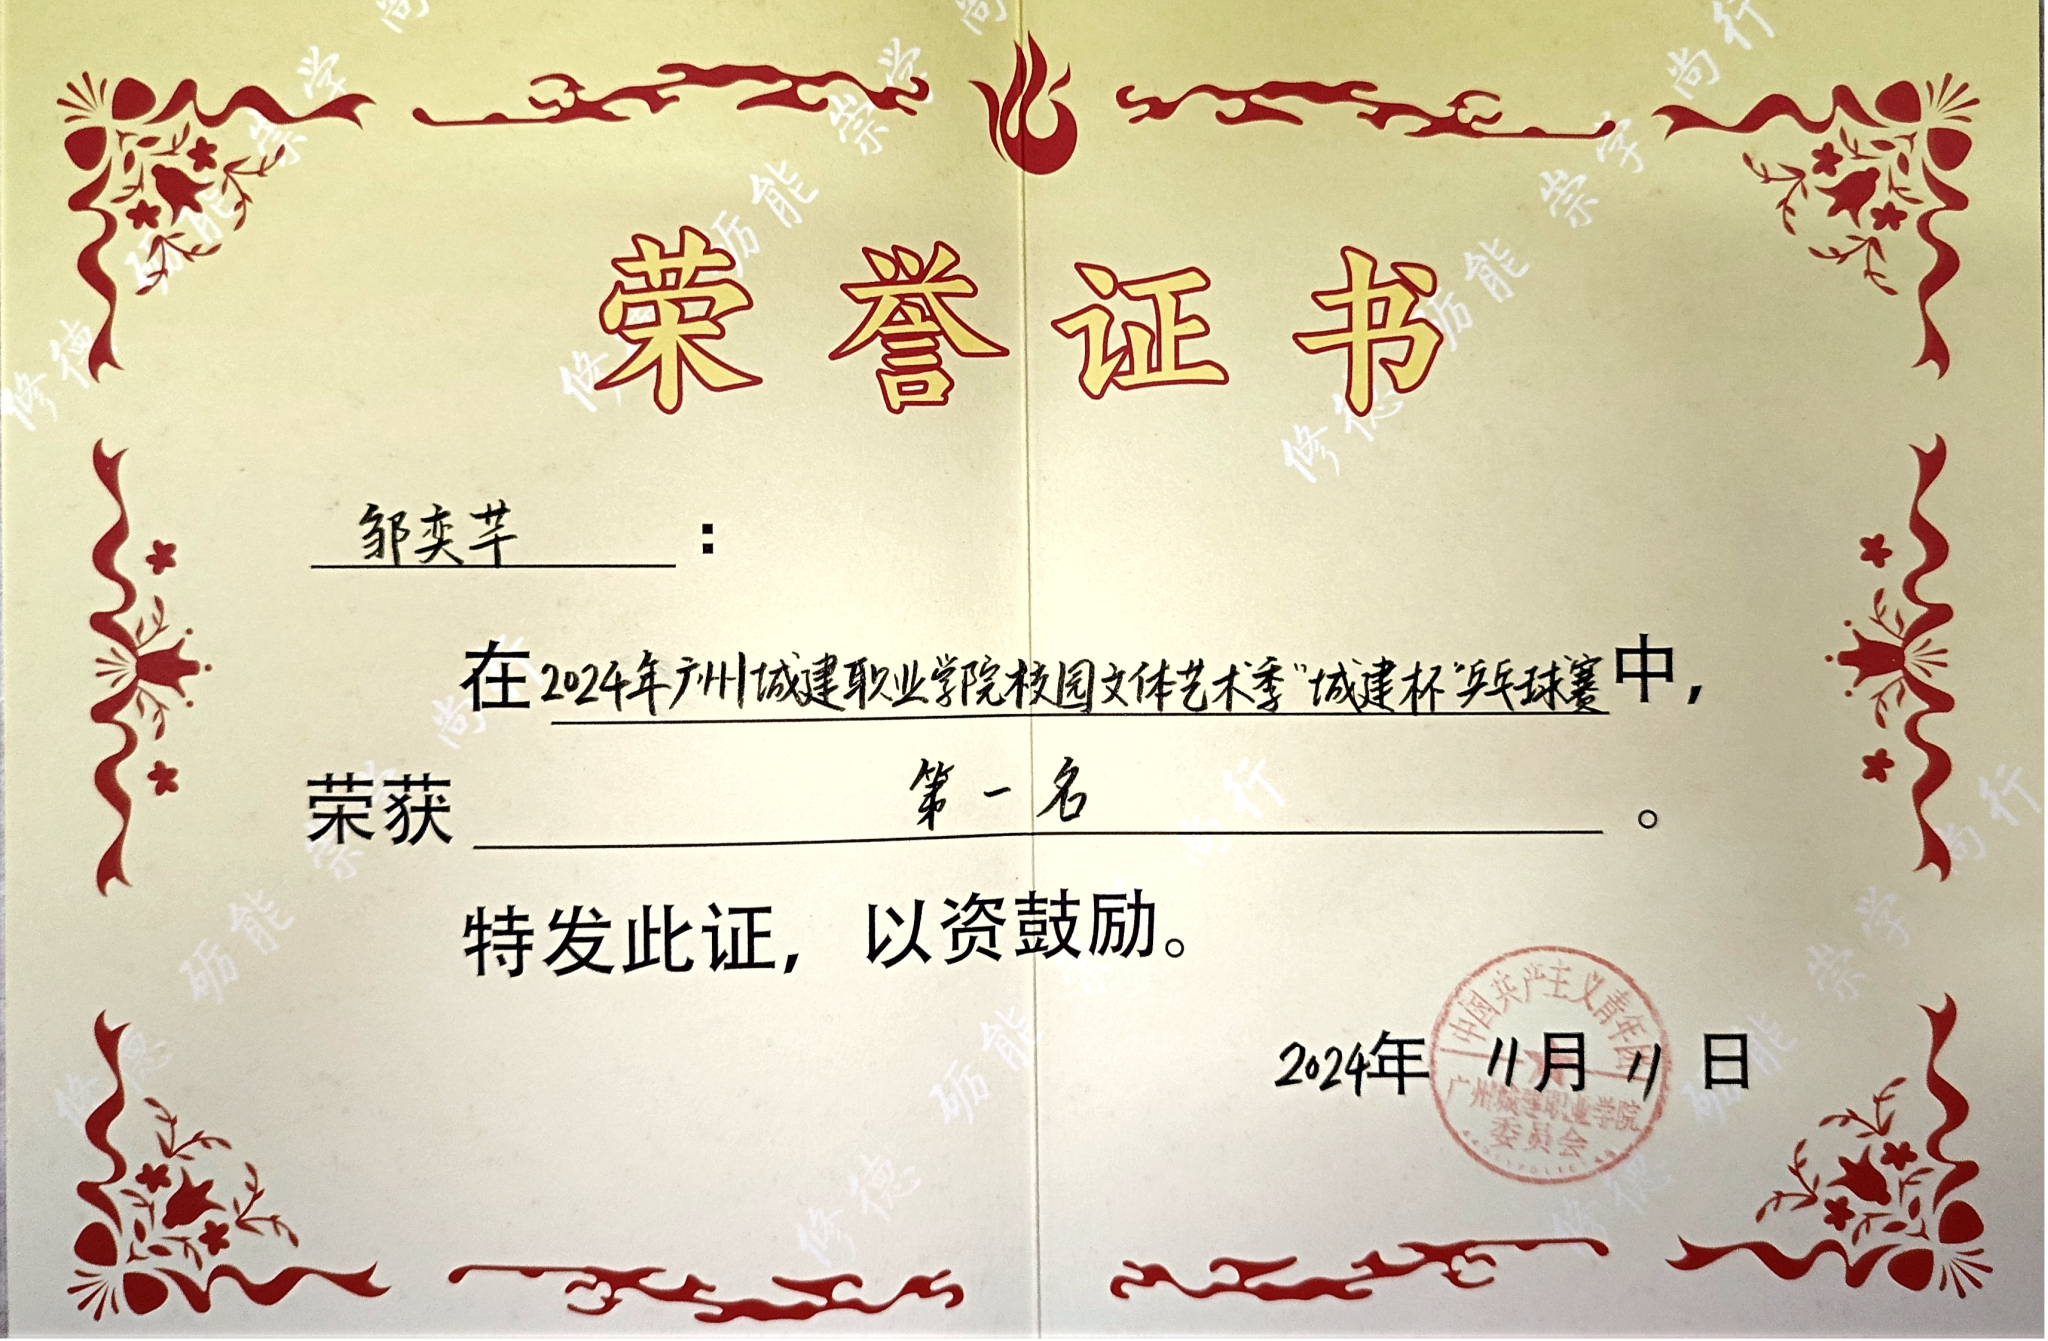 荣誉证书
邹奕芊：
在2024年广州城建职业学院校园文体艺术季"城建杯"乒乓球赛中，
荣获 第一名 。
特发此证，以资鼓励。
2024年 11月 11 日
中国共产主义青年团
广州城建职业学院
委员会
修德 砺能 崇学 尚行